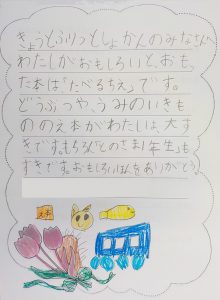 きょうとふりつとしょかんのみなさんへ
わたしがおもしろいと、おもっ
た本は「たべるちえ」です。
どうぶつや、うみのいきも
ののえ本がわたしは、大す
きです。もちろん「とのさま1年生」も
すきです。おもしろいほんをありがとう。
本